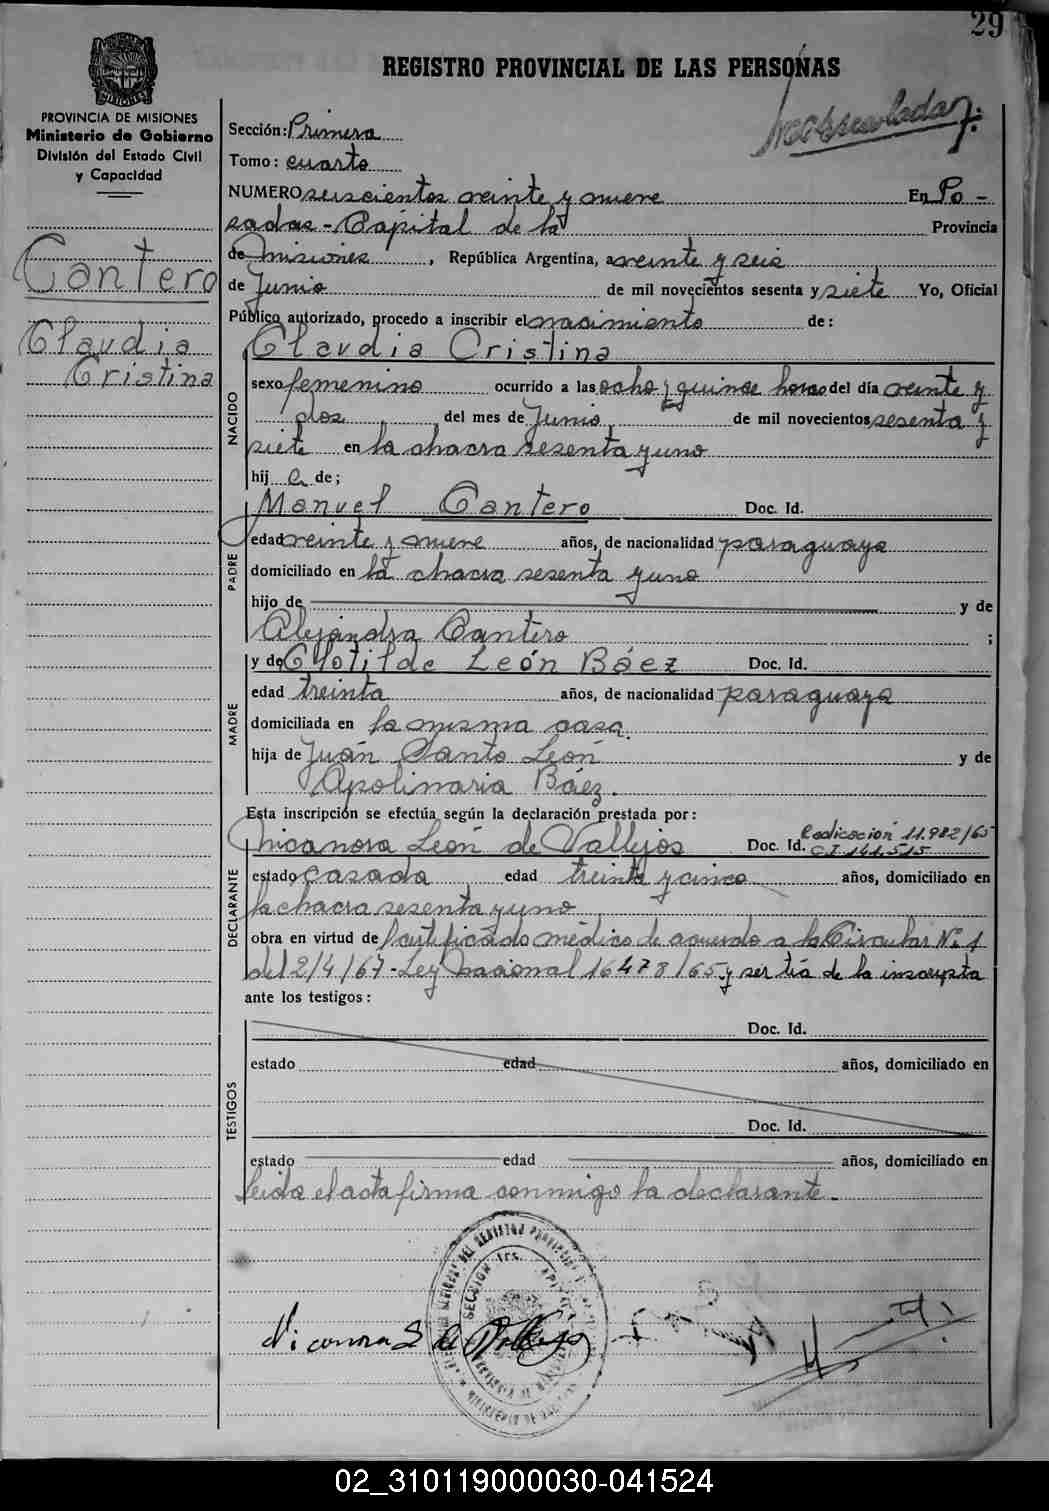 29
REGISTRO PROVINCIAL DE LAS PERSONAS
PROVINCIA DE MISIONES
Ministerio de Gobierno
División del Estado Civil
y Capacidad
Cantero
Claudia
Cristina
Sección: Primera
Tomo: cuarto
NUMERO seiscientos veinte y nueve En Po-
sadas - Capital de la Provincia
de Misiones, República Argentina, a veinte y seis
de Junio de mil novecientos sesenta y siete Yo, Oficial
Público autorizado, procedo a inscribir el nacimiento de:
Claudia Cristina
NACIDO
sexo femenino ocurrido a las ocho y quince horas del día veinte y
dos del mes de Junio de mil novecientos sesenta y
siete en la chacra sesenta y uno
hij a de;
PADRE
Manuel Cantero Doc. Id.
edad veinte y nueve años, de nacionalidad paraguaya
domiciliado en la chacra sesenta y uno
hijo de y de
Alejandra Cantero ;
MADRE
y de Clotilde León Báez Doc. Id.
edad treinta años, de nacionalidad paraguaya
domiciliada en la misma casa.
hija de Juán Santo León y de
Apolinaria Báez.
Esta inscripción se efectúa según la declaración prestada por:
DECLARANTE
Nicanora León de Vallejos Doc. Id. Radicación 11.982/65
CI 141.515
estado casada edad treinta y cinco años, domiciliado en
la chacra sesenta y uno
obra en virtud de certificado médico de acuerdo a la Circular Nº 1
del 2/4/67 - Ley Nacional 16478/65 y ser tía de la inscripta
ante los testigos:
TESTIGOS
Doc. Id.
estado edad años, domiciliado en
Doc. Id.
estado edad años, domiciliado en
Leída el acta firma conmigo la declarante.
Nicanora L de Vallejos
SECCION 1ra.
02_310119000030-041524